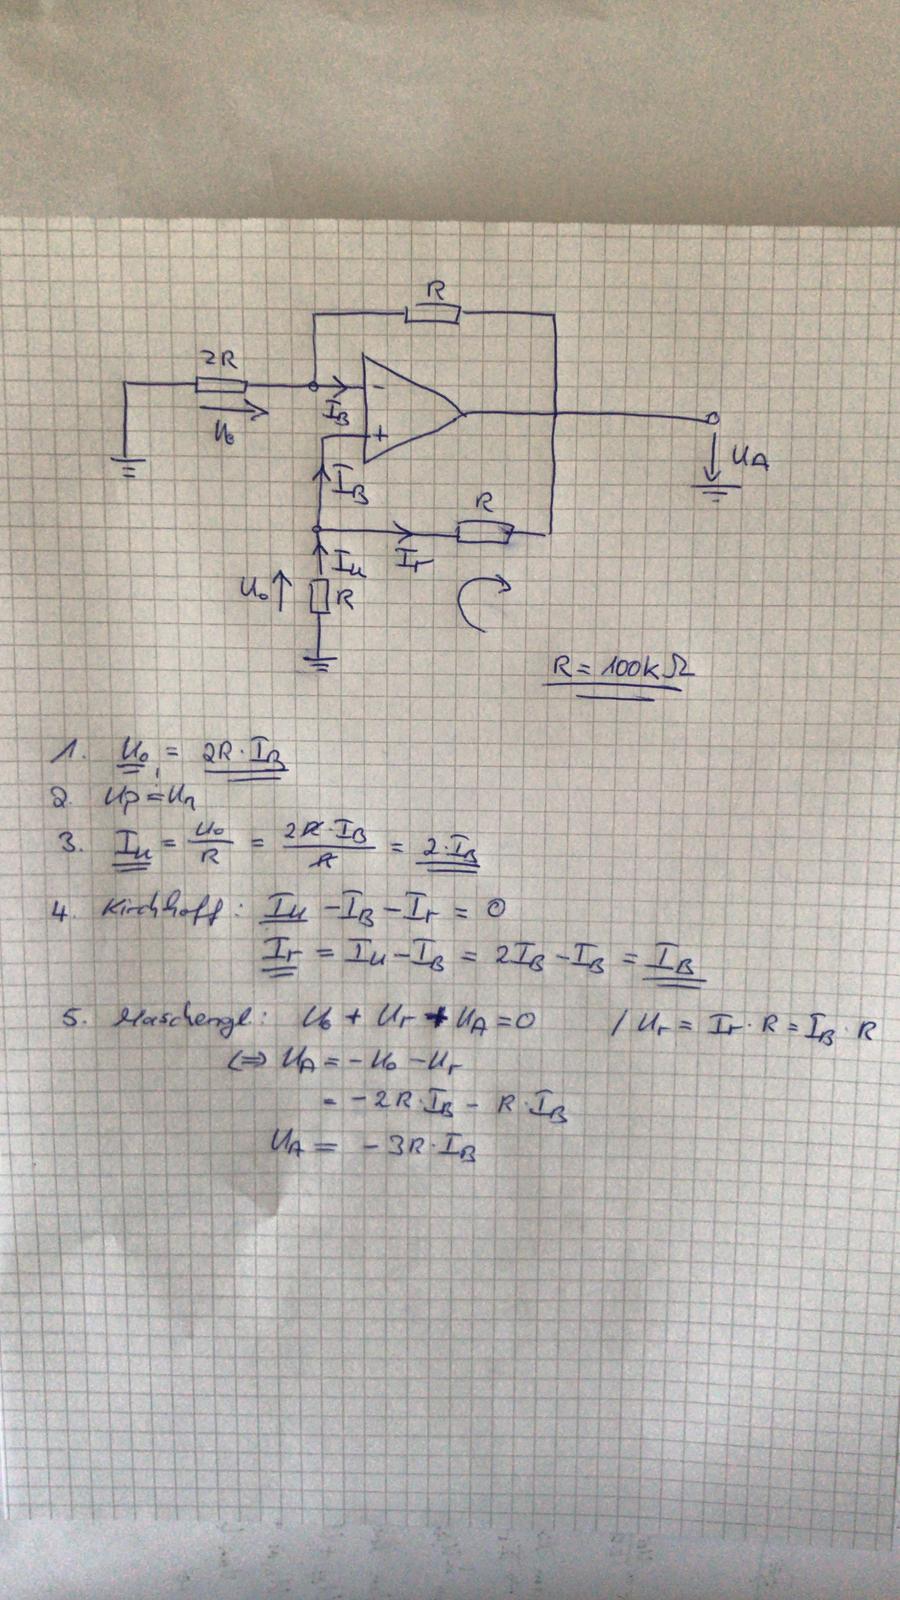 R
2R
U₀
I_B
-
+
I_B
U_A
R
I_u
I_r
U₀
R
R = 100kΩ
1. U₀ = 2R · I_B
2. Up = Un
3. I_u = U₀/R = 2R · I_B/R = 2 · I_B
4. Kirchhoff: I_u - I_B - I_r = 0
I_r = I_u - I_B = 2I_B - I_B = I_B
5. Maschengl: U₀ + U_r + U_A = 0 / U_r = I_r · R = I_B · R
<=> U_A = -U₀ - U_r
= -2R · I_B - R · I_B
U_A = -3R · I_B